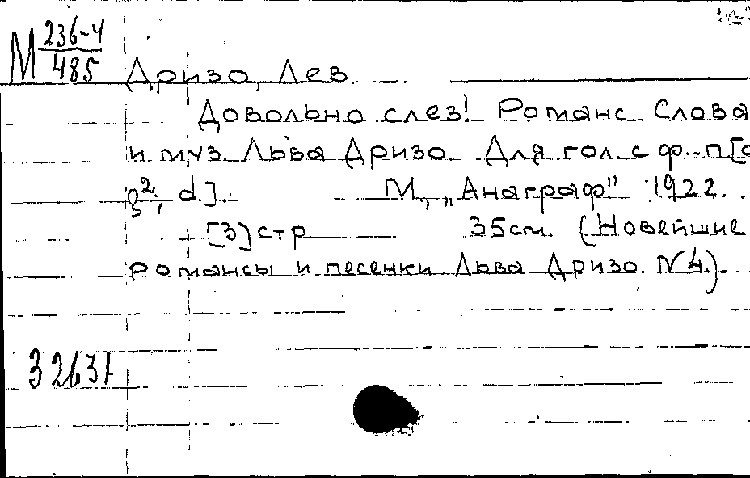 М 236-4
485
Дризо, Лев
Довольно слез! Романс Слова
и муз Льва Дризо Для гол. с ф.-п [c
g², d]. М., „Анаграф" 1922.
[3] стр 35 см. (Новейшие
романсы и песенки Льва Дризо N 4.)
32631